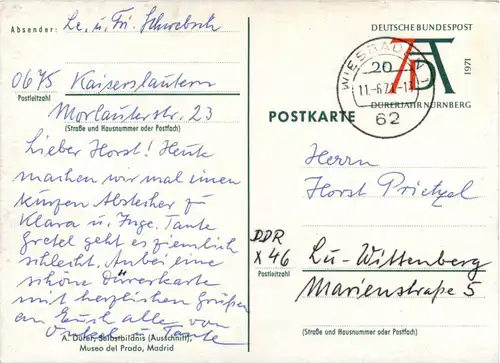 Absender: Le. u. Fr. Schwebsch
0675 Kaiserslautern
Postleitzahl
Morlauterstr. 23
(Straße und Hausnummer oder Postfach)
Lieber Horst! Heute
machen wir mal einen
kurzen Abstecher zu
Klara u. Inge. Tante
Gretel geht es ziemlich
schlecht. Anbei eine
schöne Dürerkarte
mit herzlichen Grüßen
an Euch alle von
Onkel u. Tante
A. Dürer, Selbstbildnis (Ausschnitt),
Museo del Prado, Madrid
DEUTSCHE BUNDESPOST
20
1971
DÜRERJAHR NÜRNBERG
WIESBADEN 1
62
POSTKARTE
Herrn
Horst Prietzel
DDR
X46 Lu-Wittenberg
Postleitzahl
Marienstraße 5
(Straße und Hausnummer oder Postfach)